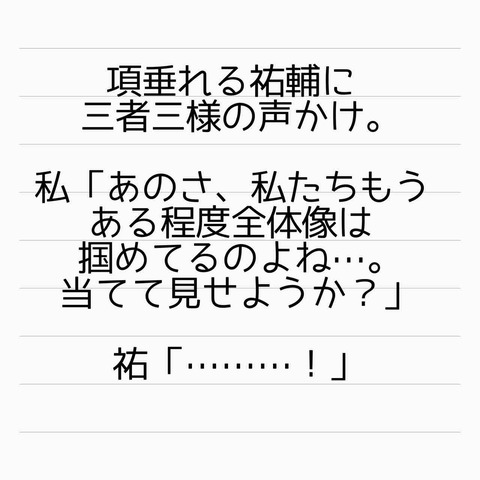 項垂れる祐輔に
三者三様の声かけ。
私「あのさ、私たちもう
ある程度全体像は
掴めてるのよね…。
当てて見せようか？」
祐「………！」